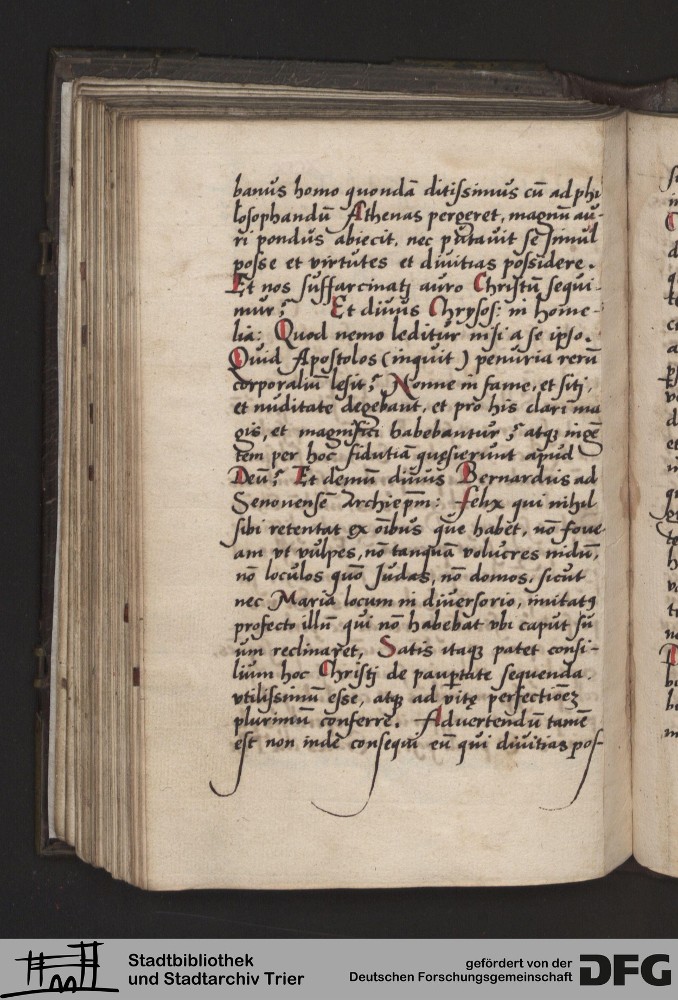 banus homo quondā ditissimus cū ad phi
losophandū Athenas pergeret, magnū au-
ri pondus abiecit, nec putauit se simul
posse et virtutes et diuitias possidere.
Et nos suffarcinatj auro Christū sequi-
mur? Et diuus Chrysos: in home-
lia: Quod nemo leditur nisi a se ipso.
Quid Apostolos (inquit) penuria rerū
corporaliū lesit? Nonne in fame, et siti,
et nuditate degebant, et pro his clari ma
gis, et magnifici habebantur? atqȝ ingē
tem per hoc fidutiā quesierunt apud
Deū? Et demū diuus Bernardus ad
Senonensē Archiepm̄: Felix qui nihil
sibi retentat ex oībus que habet, nō foue
am vt vulpes, nō tanquā volucres nidū,
nō loculos quō Judas, nō domos, sicut
nec Maria locum in diuersorio, imitatꝰ
profecto illū qui nō habebat vbi caput su
um reclinaret, Satis itaqȝ patet consi-
lium hoc Christj de paupertate sequenda
vtilissimū esse, atqȝ ad vitę perfectionēȝ
plurimū conferre. Aduertendū tamē
est non inde consequi eū qui diuitias pos-
Stadtbibliothek
und Stadtarchiv Trier
gefördert von der
Deutschen Forschungsgemeinschaft
DFG